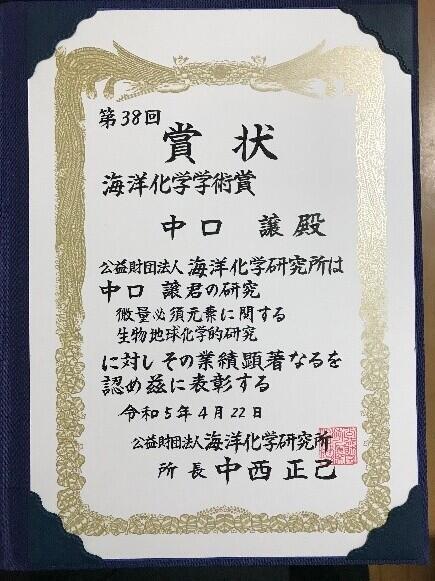 第38回
賞状
海洋化学学術賞
中口 譲殿
公益財団法人 海洋化学研究所は
中口 譲君の研究
微量必須元素に関する
生物地球化学的研究
に対しその業績顕著なるを
認め茲に表彰する
令和5年4月22日
公益財団法人海洋化学研究所
所長 中西正己